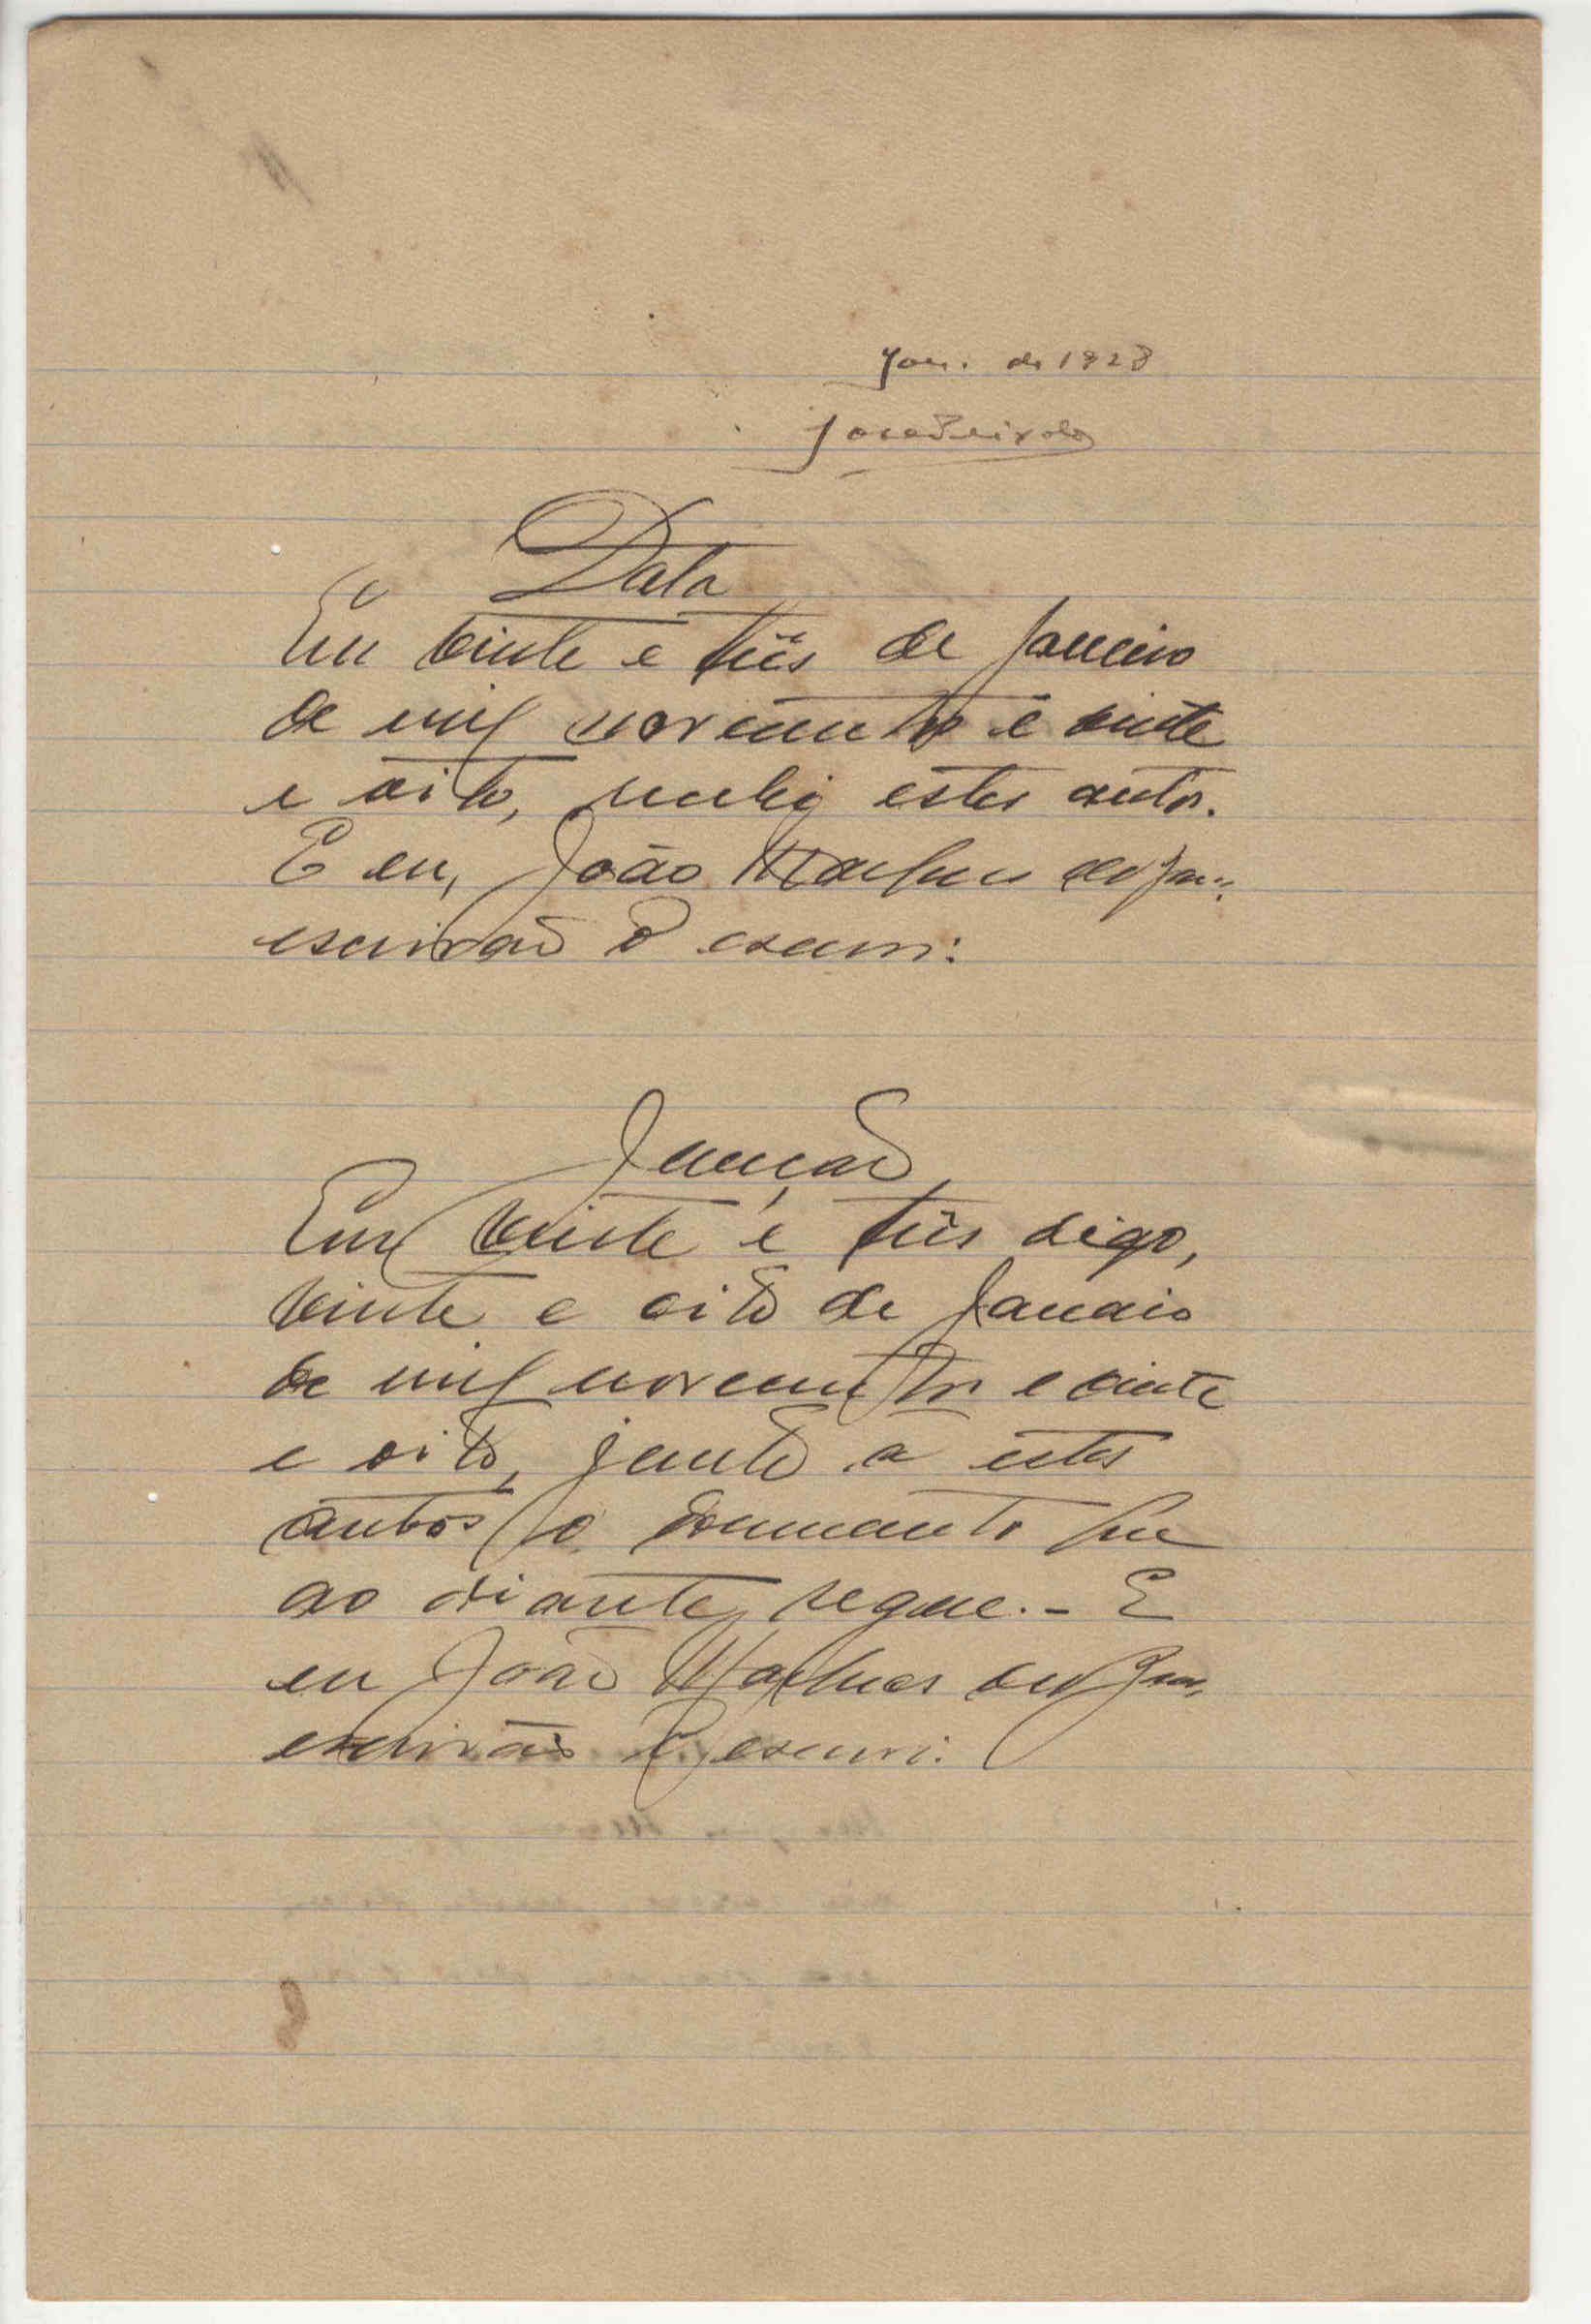 Jan. de 1928
José Peixoto
Data
Em vinte e três de Janeiro
de mil novecentos e vinte
e oito, recebi estes autos.
E eu, João
escrivão o escrevi.
Juncção
Em vinte e três digo,
vinte e oito de Janeiro
de mil novecentos e vinte
e oito, junto a estes
autos o documento que
ao diante segue. - E
eu João
escrivão o escrevi.